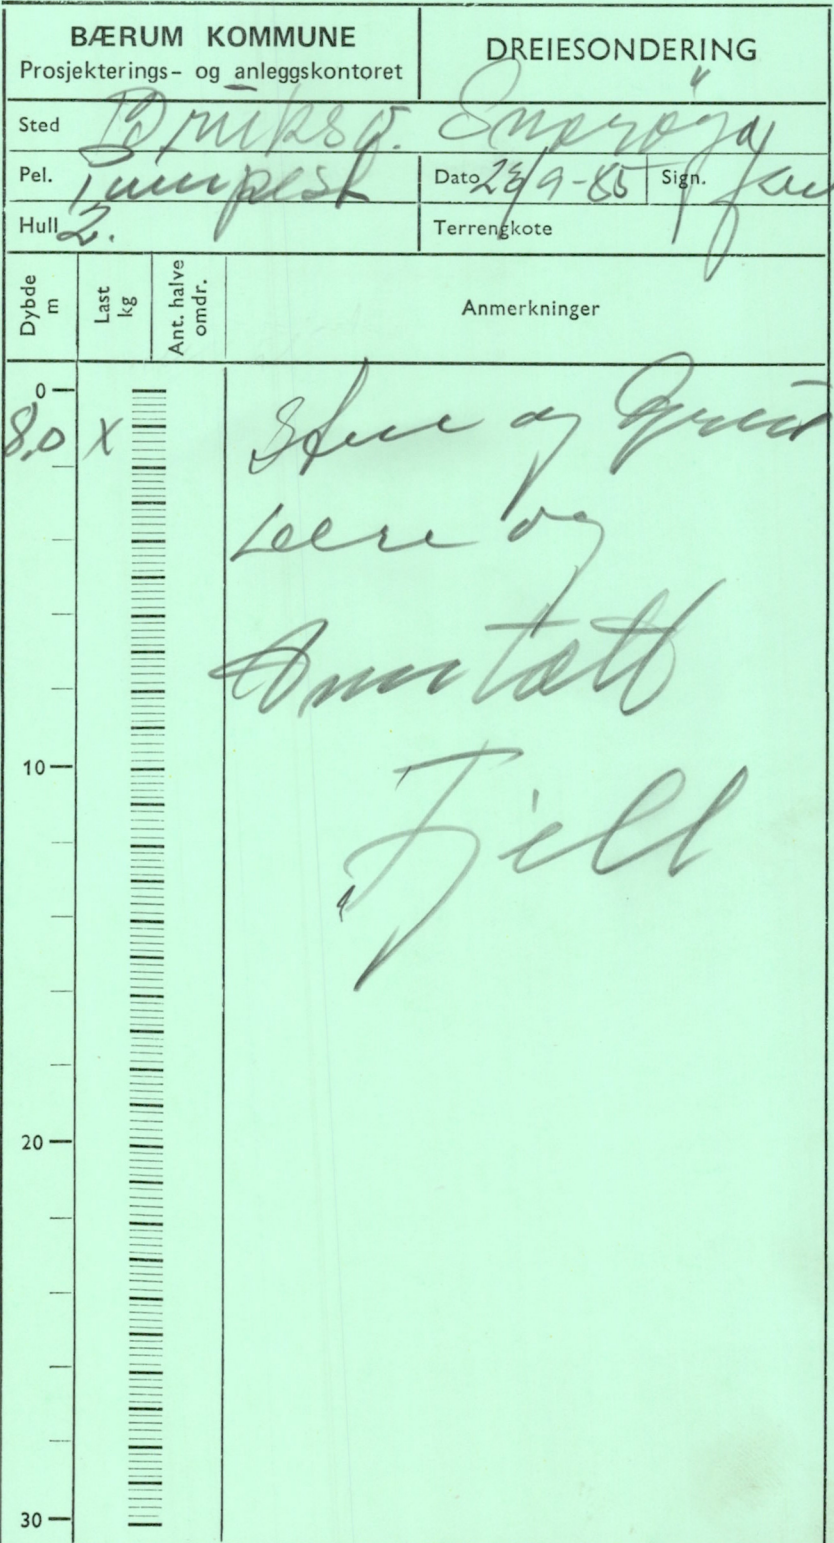 BÆRUM KOMMUNE
Prosjekterings- og anleggskontoret
DREIESONDERING
Sted Bruksv. Snarøya
Pel. Pumpest
Dato /9-85 Sign.
Hull 2.
Terrengkote
Dybde m
Last kg
Ant. halve omdr.
Anmerkninger
0
8,0 X
Sten og Grus
Leire og
tett
10
Fjell
20
30